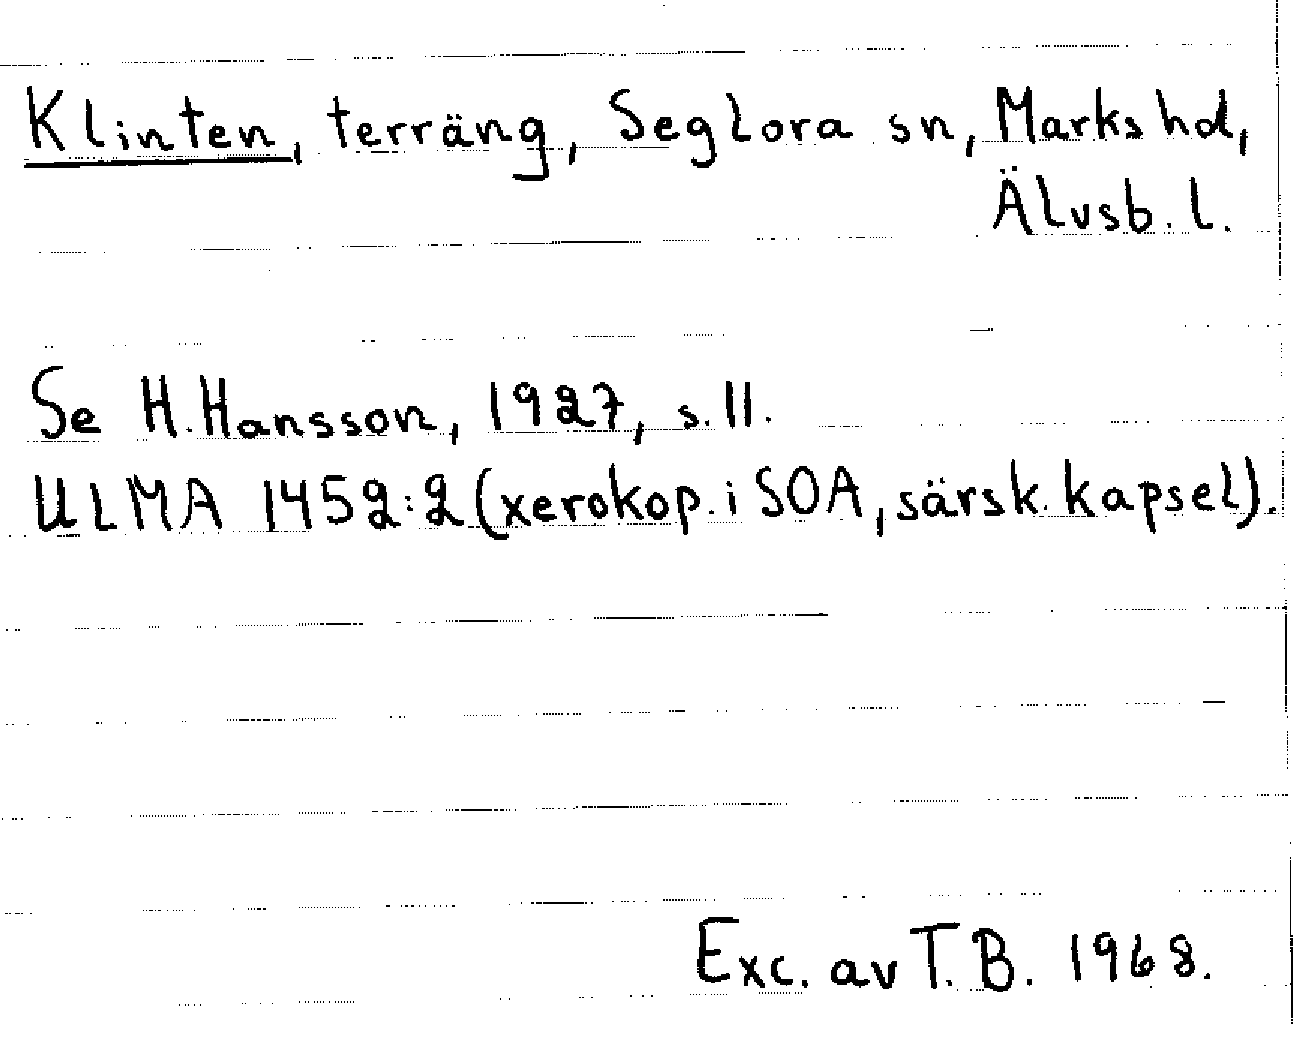 Klinten, terräng, Seglora sn, Marks hd,
Älvsb. l.
Se H. Hansson, 1927, s. 11.
ULMA 1452:2 (xerokop. i SOA, särsk. kapsel).
Exc. av T. B. 1968.